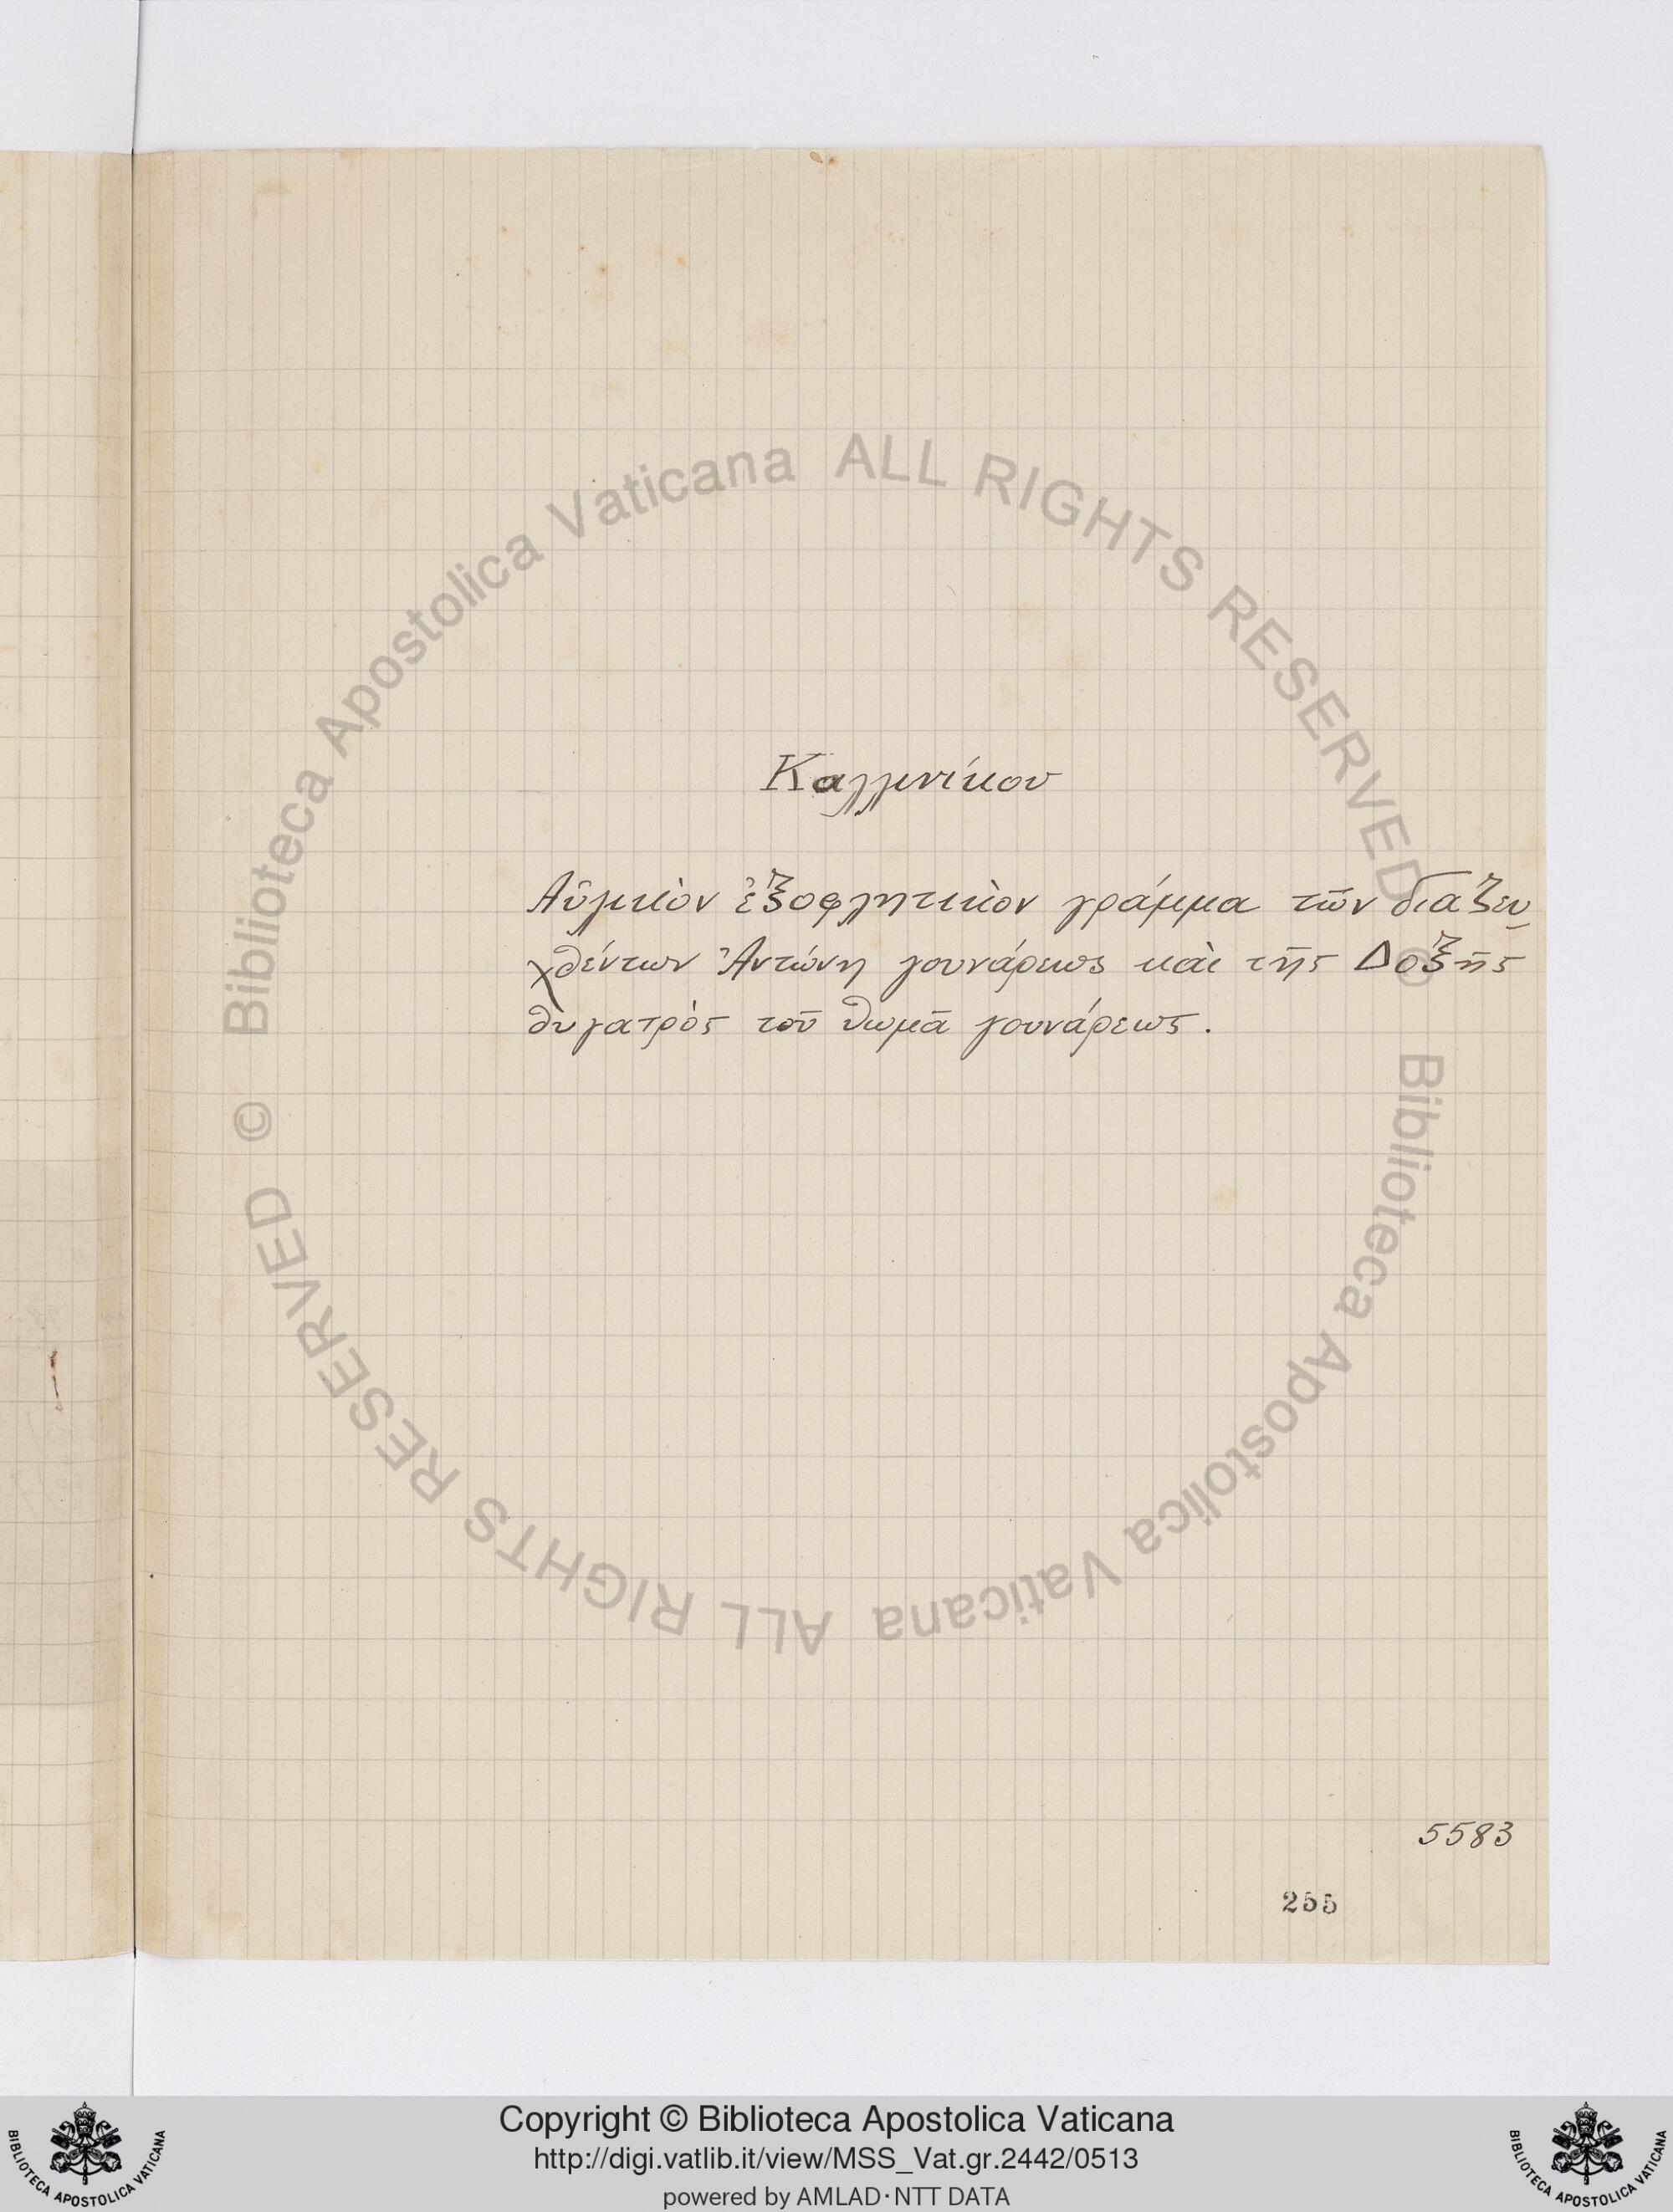 Καλλινίκου
Αὐλικὸν ἐξοφλητικὸν γράμμα τῶν διαζευ-
χθέντων Ἀντώνη γουνάρεως καὶ τῆς Δοξῆς
θυγατρὸς τοῦ θωμᾶ γουνάρεως.
5583
255
© Biblioteca Apostolica Vaticana ALL RIGHTS RESERVED
© Biblioteca Apostolica Vaticana ALL RIGHTS RESERVED
BIBLIOTECA APOSTOLICA VATICANA
Copyright © Biblioteca Apostolica Vaticana
http://digi.vatlib.it/view/MSS_Vat.gr.2442/0513
powered by AMLAD·NTT DATA
BIBLIOTECA APOSTOLICA VATICANA